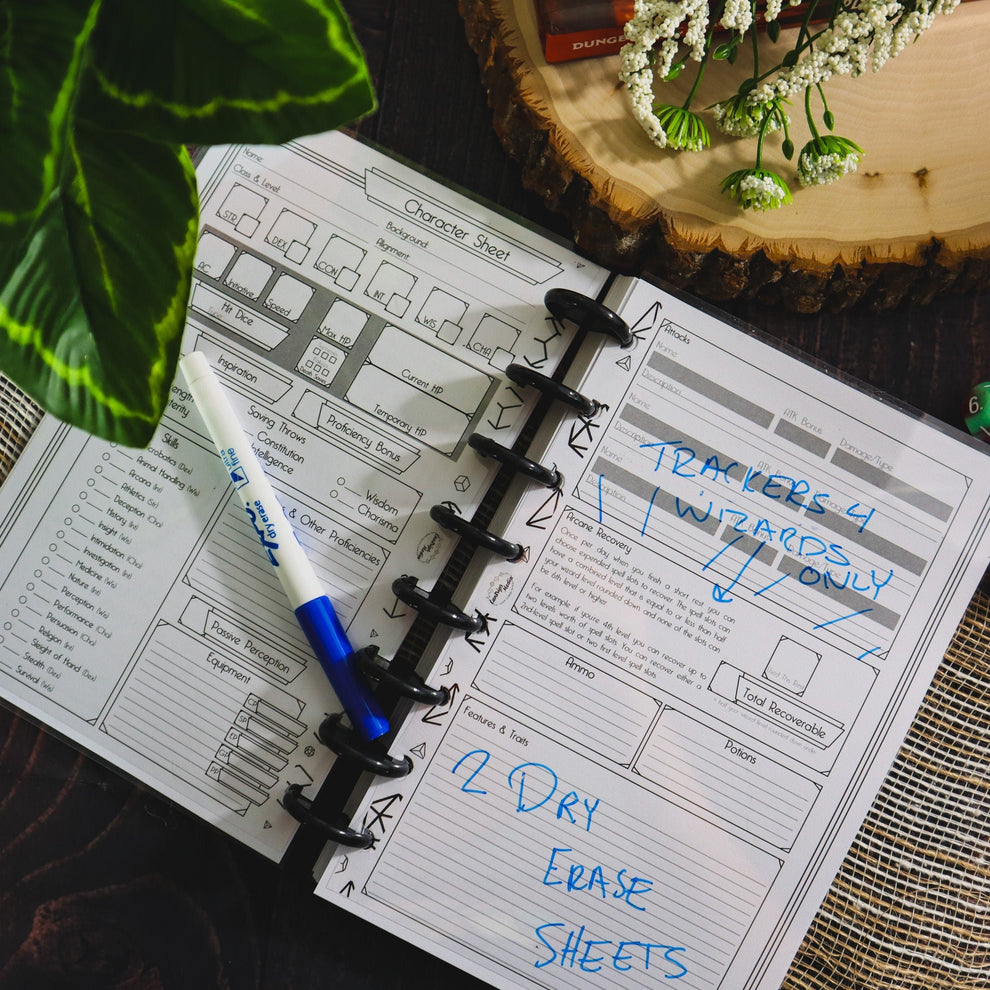 DUNGE
Name:
Class & Level
Character Sheet
Background:
Alignment:
STR
DEX
CON
INT
WIS
CHA
AC
Initiative
Speed
Max HP
Hit Dice
Death Saves
Current HP
Temporary HP
Inspiration
Proficiency Bonus
Saving Throws
Constitution
Intelligence
Wisdom
Charisma
Skills
Acrobatics (Dex)
Animal Handling (Wis)
Arcana (Int)
Athletics (Str)
Deception (Cha)
History (Int)
Insight (Wis)
Intimidation (Cha)
Investigation (Int)
Medicine (Wis)
Nature (Int)
Perception (Wis)
Performance (Cha)
Persuasion (Cha)
Religion (Int)
Sleight of Hand (Dex)
Stealth (Dex)
Survival (Wis)
& Other Proficiencies
Passive Perception
Equipment
CP
SP
EP
GP
PP
fine
dry erase
Attacks
Name
Description
ATK Bonus
Damage/Type
Name
Description
ATK Bonus
Name
Description
TRACKERS 4
WIZARDS
ONLY
Arcane Recovery
Once per day when you finish a short rest you can
choose expended spell slots to recover. The spell slots can
have a combined level that is equal to or less than half
your wizard level rounded down and none of the slots can
be 6th level or higher
For example if you're 4th level you can recover up to
two levels worth of spell slots. You can recover either a
2nd-level spell slot or two first level spell slots
Total Recoverable
Ammo
Potions
Features & Traits
2 DRY
ERASE
SHEETS
6.